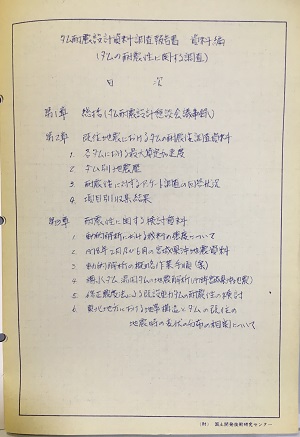 ダム耐震設計資料調査報告書 資料編
(ダムの耐震性に関する調査)
目 次
第1章 総括(ダム耐震設計懇談会議事録)
第2章 既往地震におけるダムの耐震性調査資料
1. 各ダムにおける最大算定加速度
2. ダム別地震歴
3. 耐震性に対するアンケート調査の回答状況
4. 項目別収集結果
第3章 耐震性に関する検討資料
1. 動的解析における材料の密度について
2. 1978年2月及び6月の宮城県沖地震資料
3. 動的解析の概略作業手順(案)
4.
5. 修正震度法による既設重力ダムの耐震性の検討
6. 東北地方における地帯構造とダムの既往の
地震時の震度の分布の相関について
(財) 国土開発技術研究センター